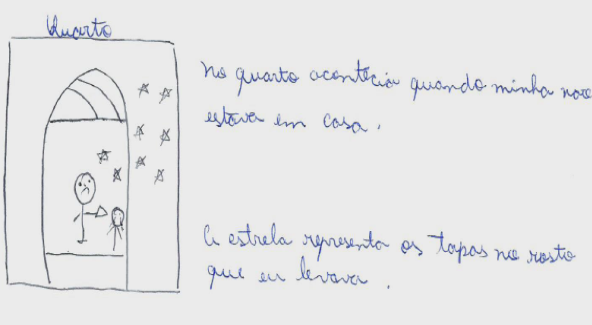 Quarto
no quarto acontecia quando minha mãe
estava em casa.
A estrela representa os tapas no rosto
que eu levava.